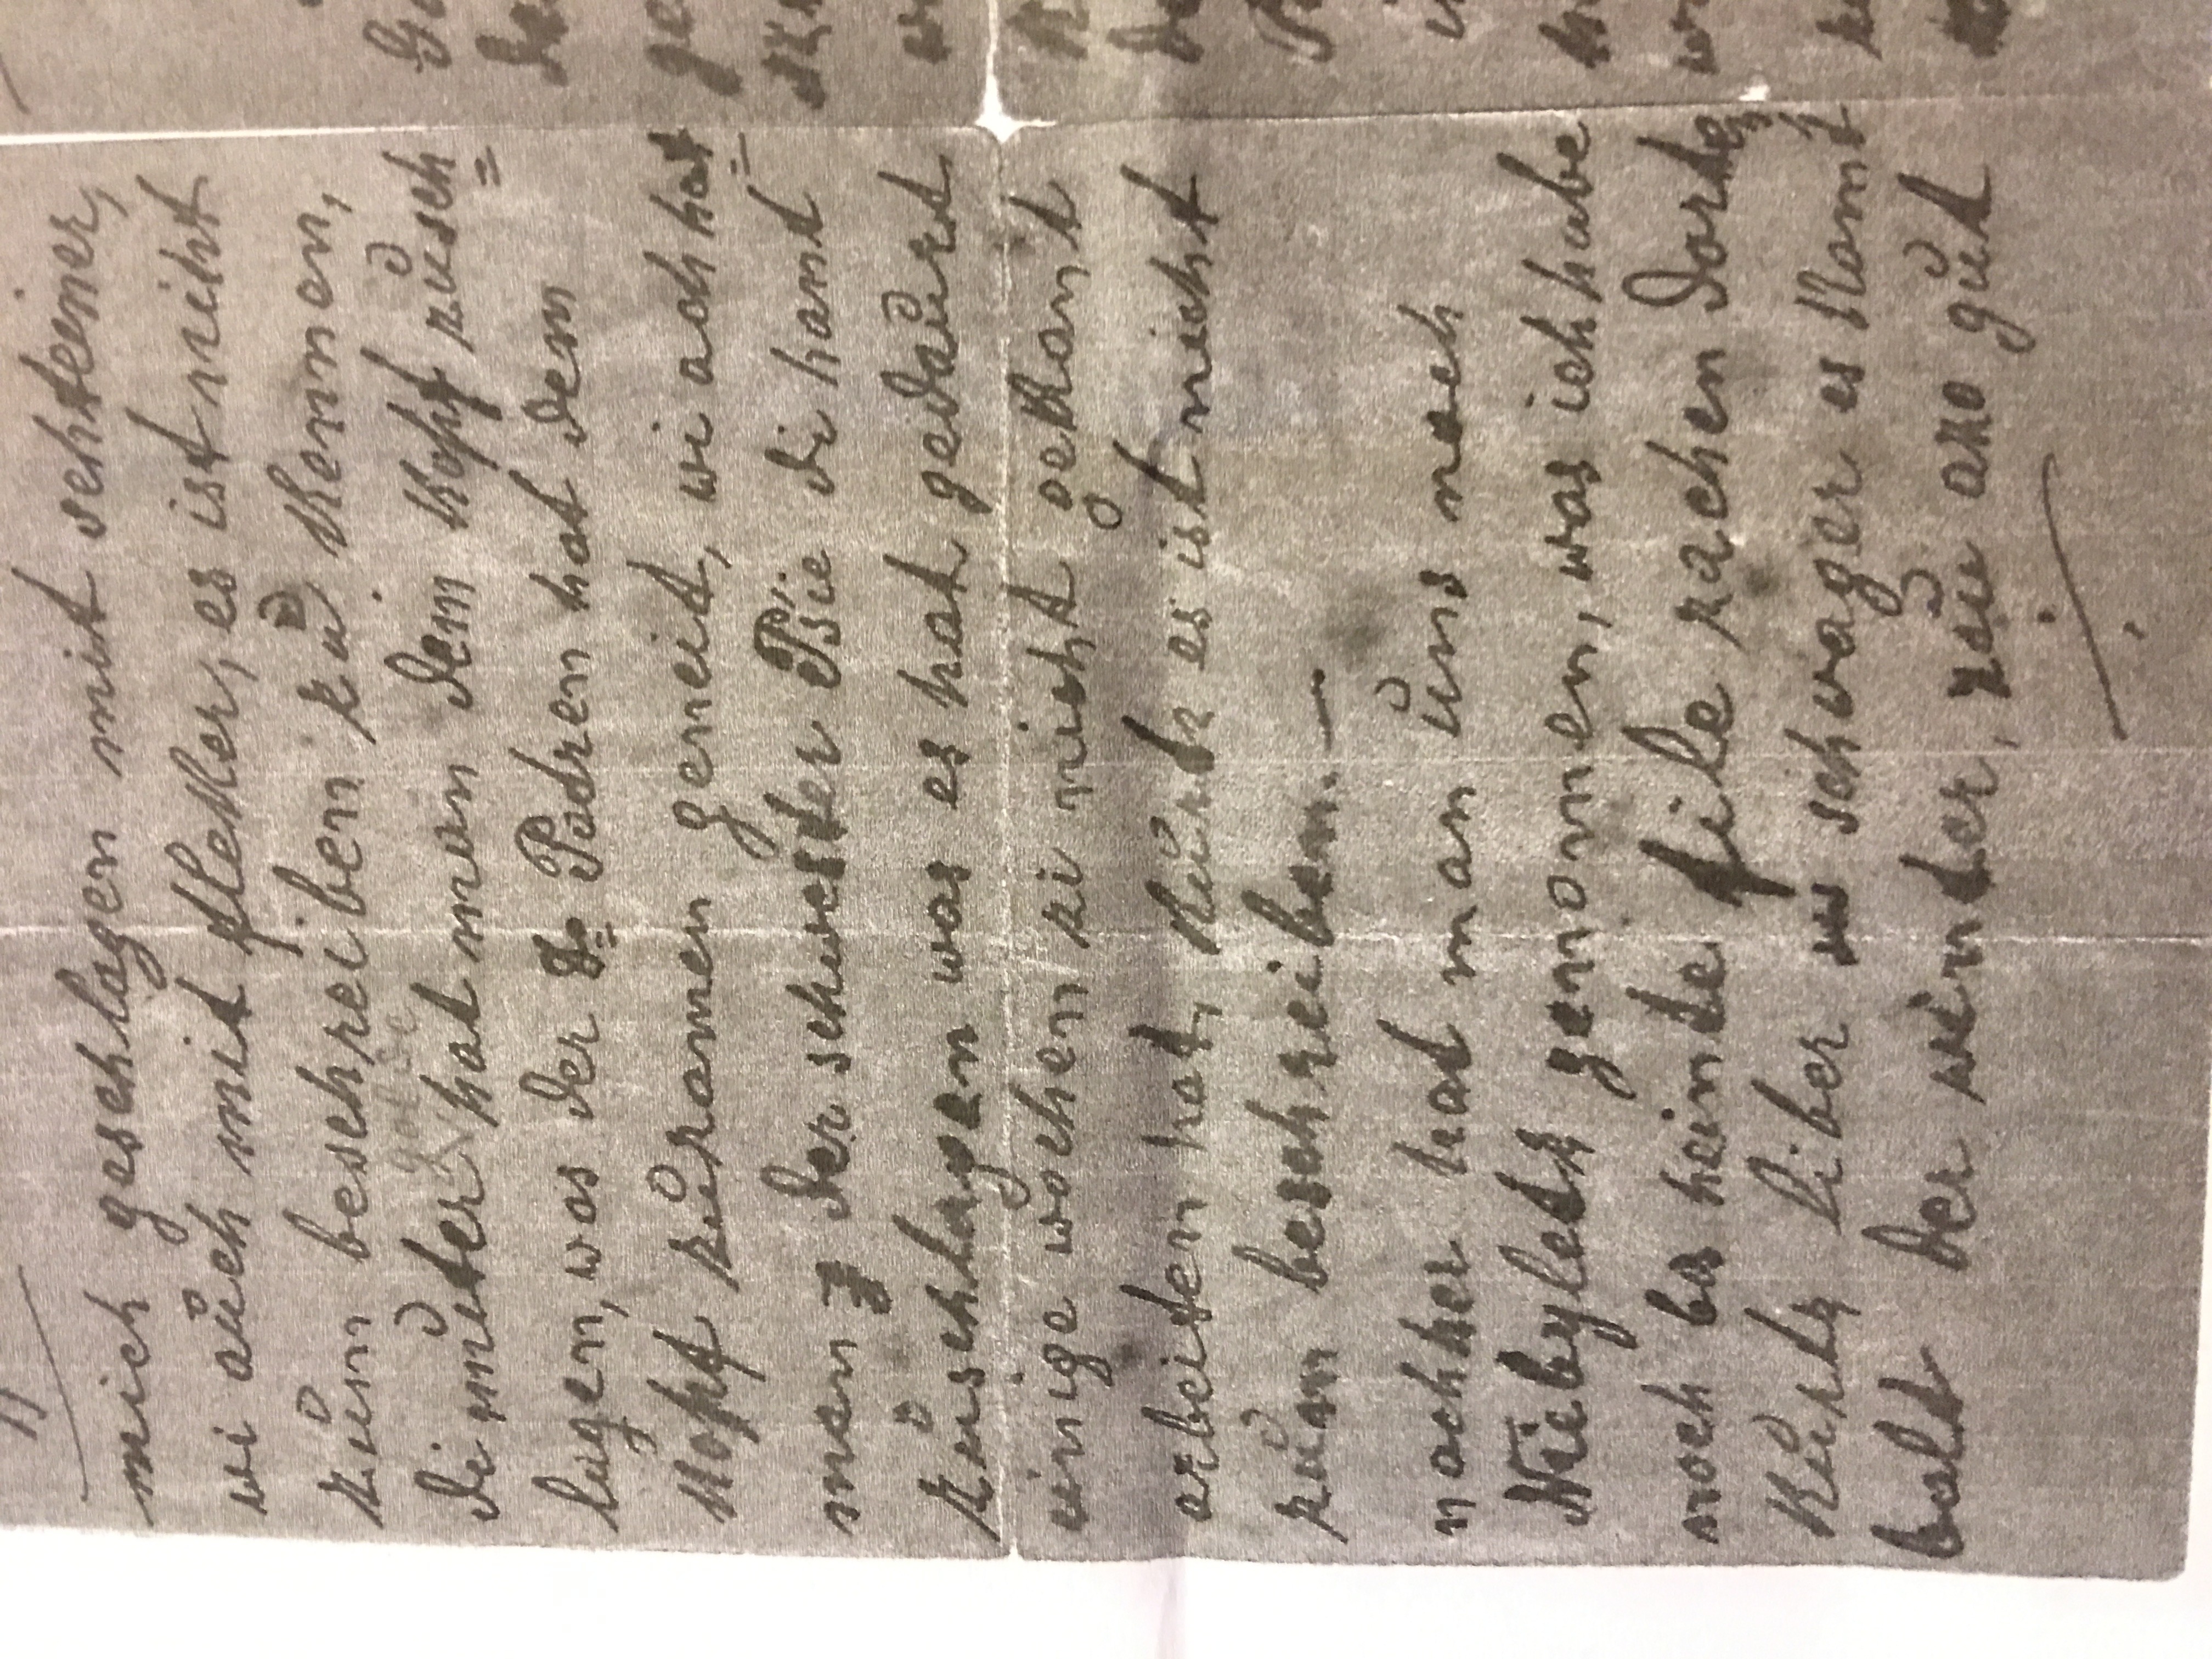 11
mich geschlagen mit schteiner,
wi aůch mit flekker, es ist nicht
zům beschreiben zů kennen,
di můter hat man dem kopf zůsch=
lagen, was der Padren hat dem
kopf zůsamen geneit, wi ach hat=
man der schwester Psie di hant
zůschlagen was es hat gedaůert
einige wochen zi nicht gekant
arbeiten hat, kůrtz es ist nicht
zům beschreiben. —
nachher hat man ůns noch
genomen, was ich habe
noch bas heinte file zachen dorten
kůrtz liber schwager es komt
balt der winter, zaů azo gůt
./.